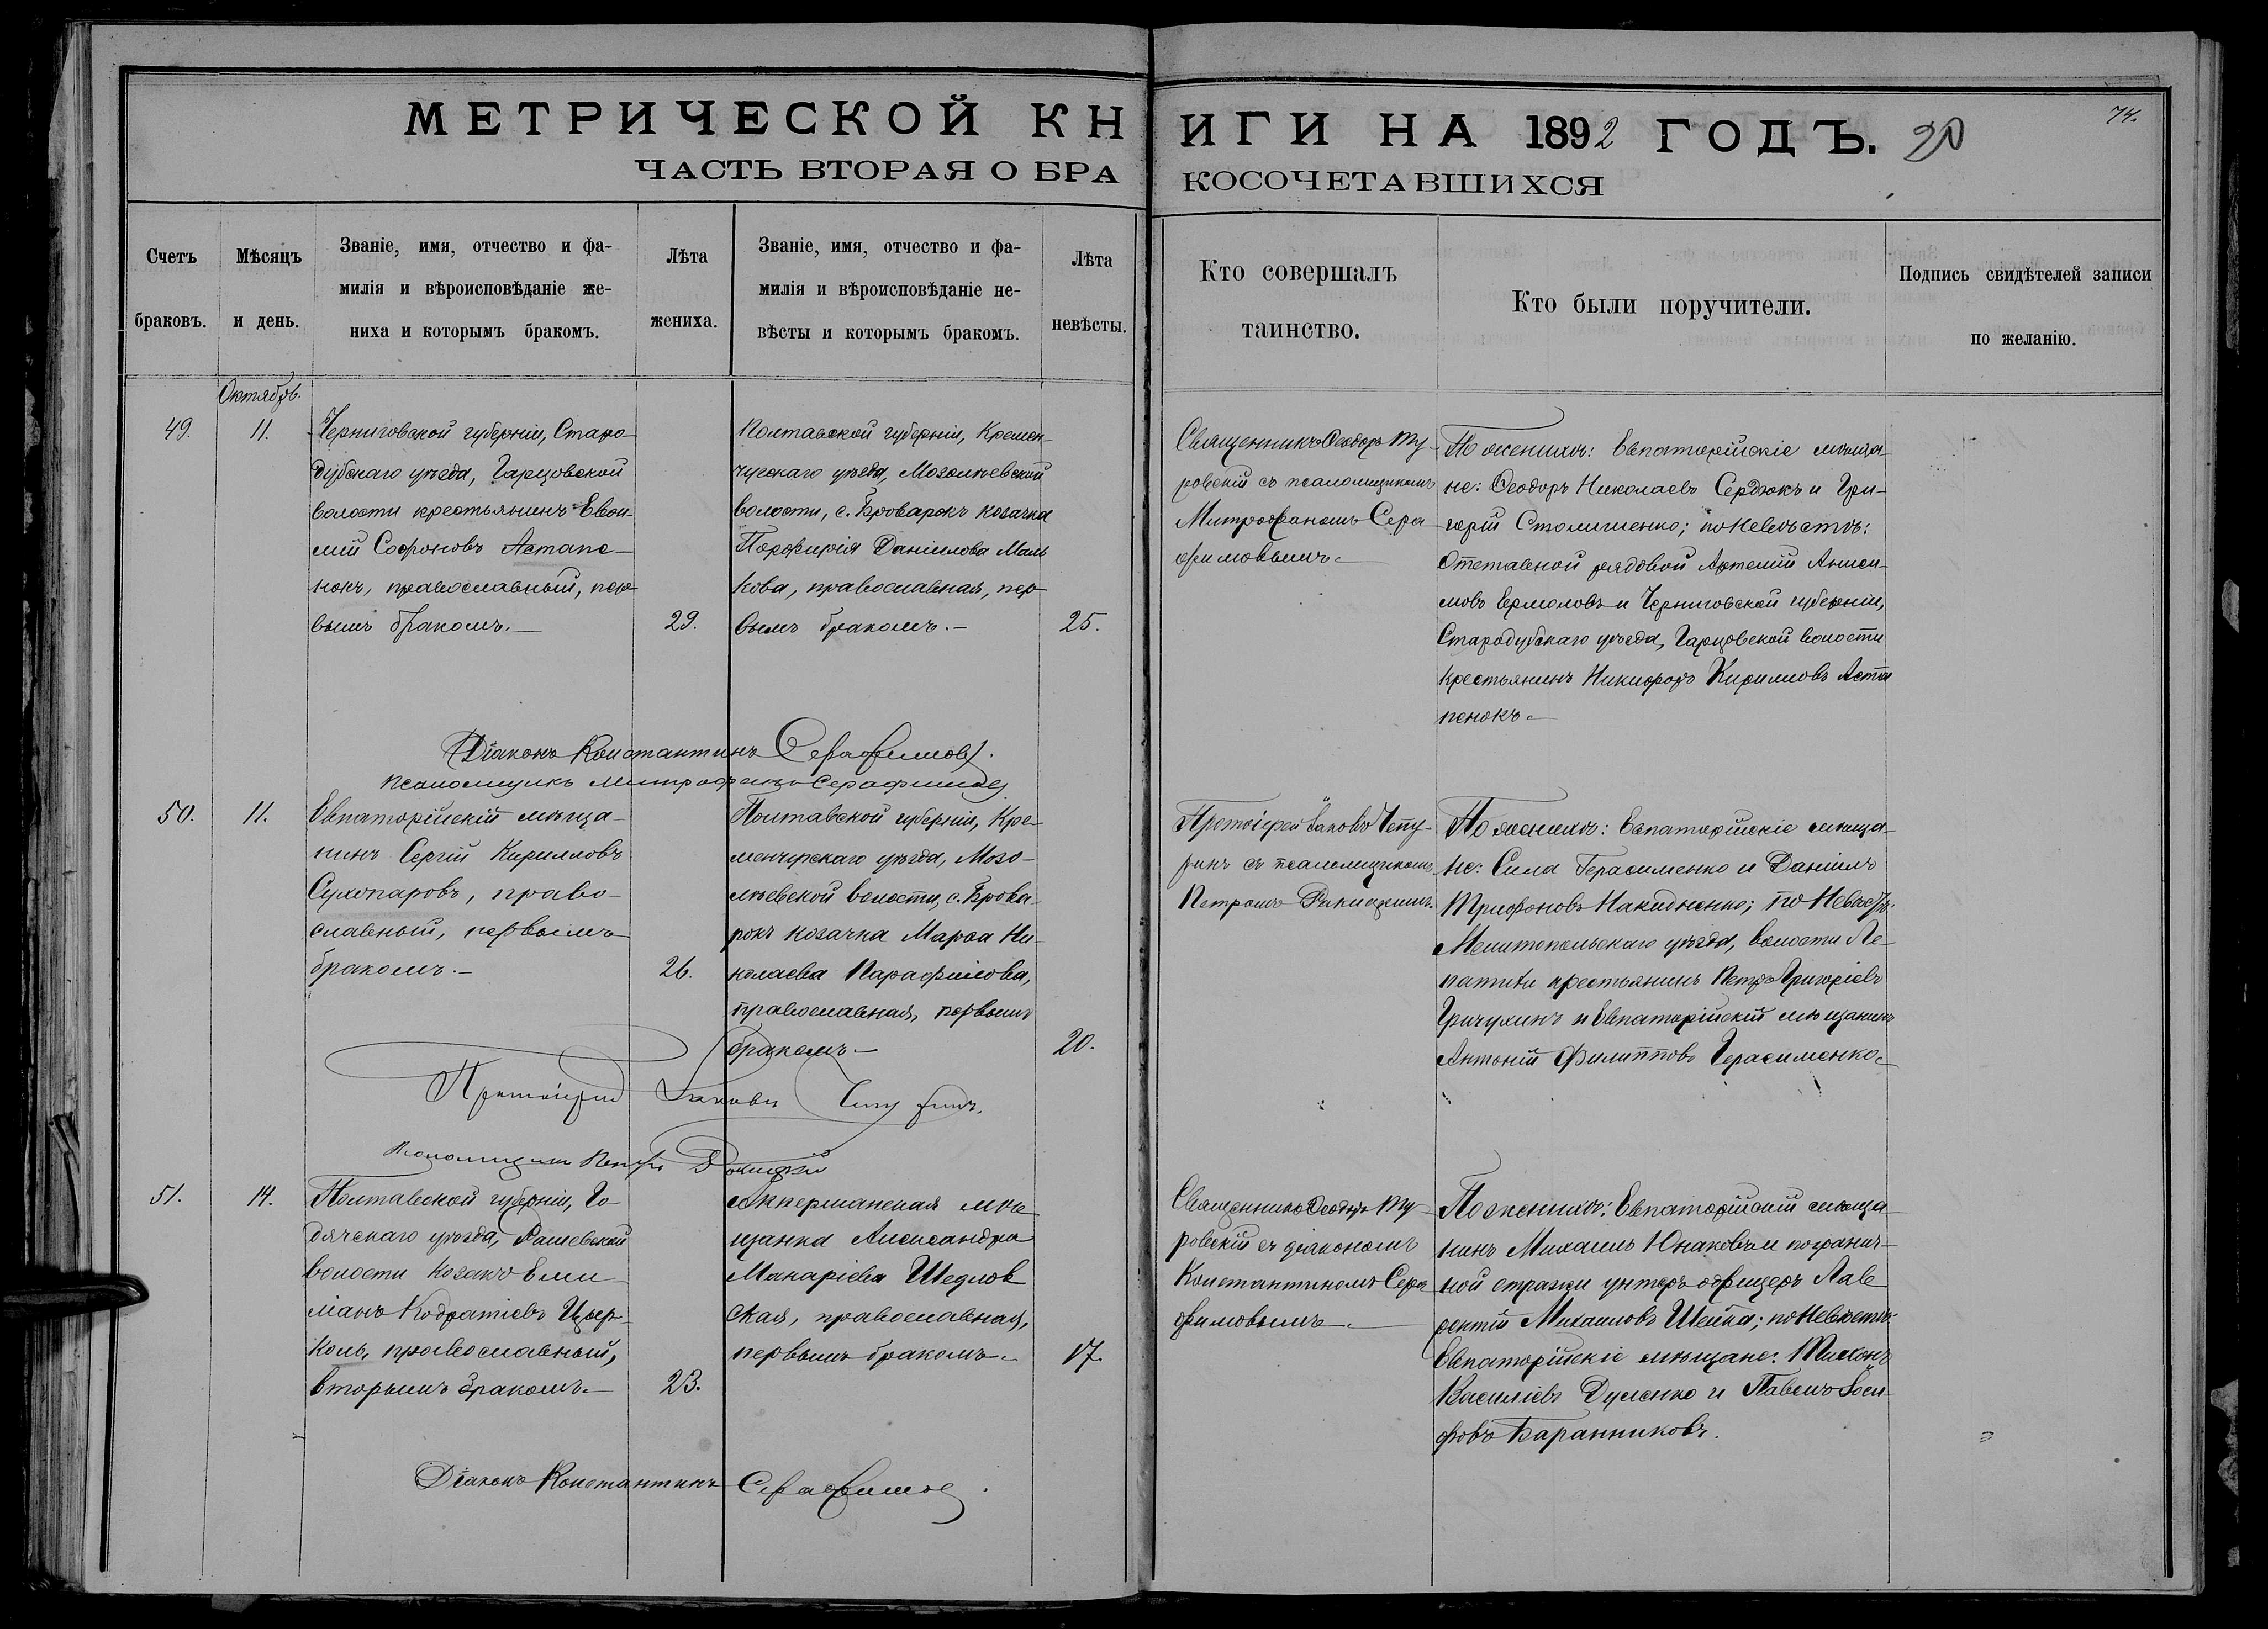 МЕТРИЧЕСКОЙ КНИГИ НА 1892 ГОДЪ.
74.
ЧАСТЬ ВТОРАЯ О БРАКОСОЧЕТАВШИХСЯ
Счетъ
браковъ.
Мѣсяцъ
и день.
Званіе, имя, отчество и фа-
милія и вѣроисповѣданіе же-
ниха и которымъ бракомъ.
Лѣта
жениха.
Званіе, имя, отчество и фа-
милія и вѣроисповѣданіе не-
вѣсты и которымъ бракомъ.
Лѣта
невѣсты.
Кто совершалъ
таинство.
Кто были поручители.
Подпись свидѣтелей записи
по желанію.
Октябрь.
49.
11.
Черниговской губерніи, Старо-
дубскаго уѣзда, Гарцовской
волости крестьянинъ Евѳи-
мій Софроновъ Астапе-
нокъ, православный, пер-
вымъ бракомъ.
29.
Полтавской губерніи, Кремен-
чугскаго уѣзда, Мозолѣевской
волости, с. Броварокъ козачка
Порфирія Даніилова Маль
кова, православная, пер-
вымъ бракомъ.
25.
Священникъ Ѳеодоръ Ту-
ровскій съ псаломщикомъ
Митрофаномъ Сера
фимовымъ.
По женихѣ: Евпаторійскіе мѣща-
не: Ѳеодоръ Николаевъ Сердюкъ и Гри-
горій Столишенко; по невѣстѣ:
Отставной рядовой Артемій Аниси-
мовъ Ермоловъ и Черниговской губерніи,
Стародубскаго уѣзда, Гарцовской волости
крестьянинъ Никифоръ Кирилловъ Аста
пенокъ.
Діаконъ Константинъ Серафимовъ.
Псаломщикъ Митрофанъ Серафимовъ
50.
11.
Евпаторійскій мѣща-
нинъ Сергій Кирилловъ
Сухопаровъ, право-
славный, первымъ
бракомъ.
26.
Полтавской губерніи, Кре-
менчугскаго уѣзда, Мозо-
лѣевской волости, с. Брова-
рокъ козачка Марѳа Ни-
колаева Парафилова,
православная, первымъ
бракомъ.
20.
Протоіерей Іаковъ Чепу-
ринъ съ псаломщикомъ
Петромъ
По женихѣ: Евпаторійскіе мѣща-
не: Сила Герасименко и Даніилъ
Трифоновъ Накидненко; по невѣстѣ:
Мелитопольскаго уѣзда, волости Ле-
патихи крестьянинъ Петръ Григоріевъ
Гричухинъ и Евпаторійскій мѣщанинъ
Антоній Филипповъ Герасименко.
Протоіерей Іаковъ Чепуринъ.
Псаломщикъ Петръ
51.
14.
Полтавской губерніи, Га-
дячскаго уѣзда, Рашевской
волости козакъ Еми
ліанъ Кодратіевъ Цьер-
коль, православный,
вторымъ бракомъ.
23.
Аккерманская мѣ-
щанка Александра
Макаріева Шедлов
ская, православная,
первымъ бракомъ.
17.
Священникъ Ѳеодоръ Ту
ровскій съ діакономъ
Константиномъ Сера
фимовымъ.
По женихѣ: Евпаторійскій мѣща-
нинъ Михаилъ Юнаковъ и погранич-
ной стражи унтеръ офицеръ Лав
рентій Михаиловъ Шейка; по невѣстѣ:
Евпаторійскіе мѣщане: Тихонъ
Василіевъ Дуленко и Павелъ Іоси-
фовъ Баранниковъ.
Діаконъ Константинъ Серафимовъ.